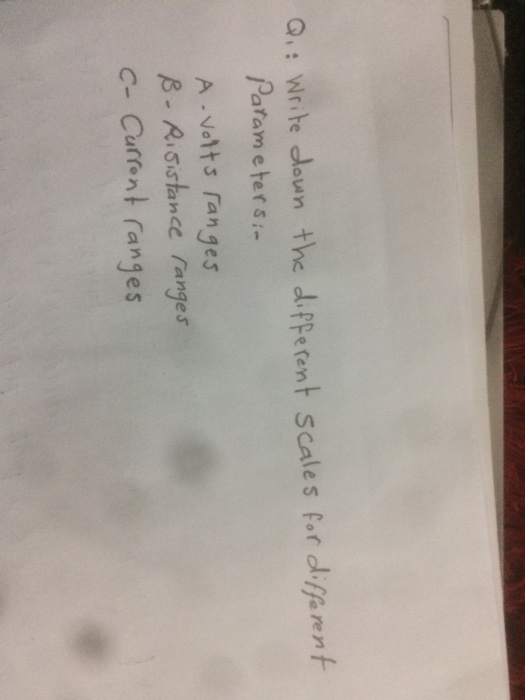 Q1: Write down the different scales for different
Parameters:-
A - Volts ranges
B - Risistance ranges
C - Current ranges